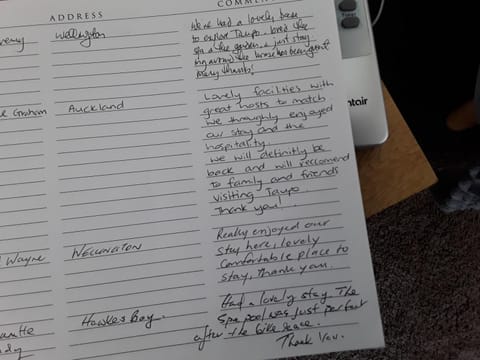 ADDRESS
COMME
Wellington
We've had a lovely base
to explore Taupo - loved the
spa & the garden & just stay-
ing around the house has been great
Many thanks!
Graham
Auckland
Lovely facilities with
great hosts to match
we throughly enjoyed
our stay and the
hospitality.
we will definitly be
back and will reccomend
to family and friends
visiting Taupo
Thank you!
Wayne
WELLINGTON
Really enjoyed our
stay here, lovely
comfortable place to
stay, thank you.
Hawkes Bay.
Had a lovely stay The
Spa pool was just perfect
after the bike race.
Thank You.
TIMER
ntair